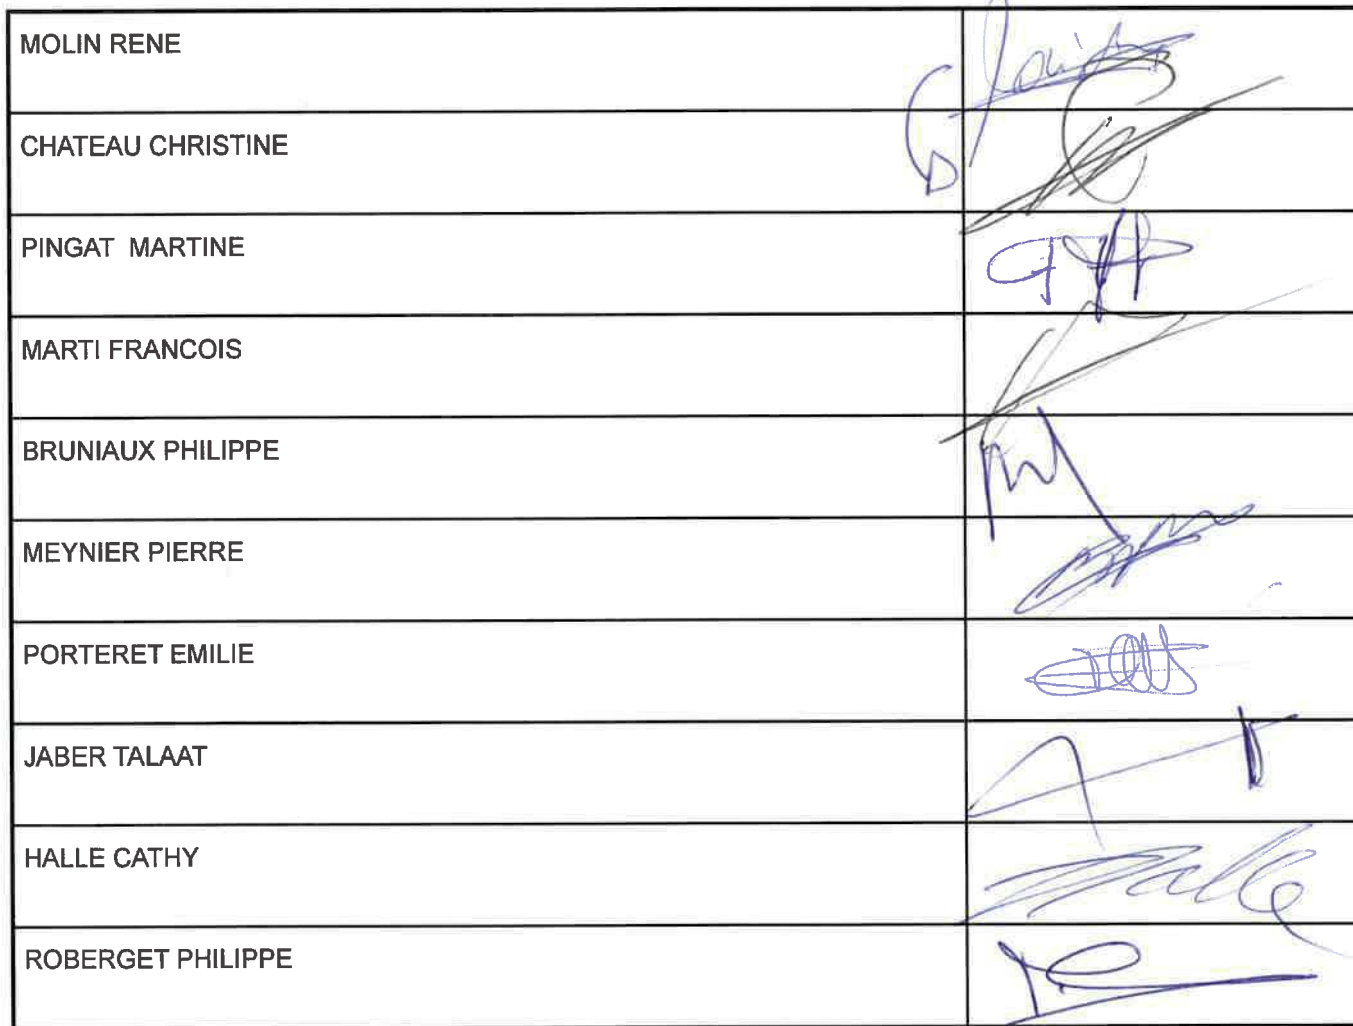 MOLIN RENE
CHATEAU CHRISTINE
PINGAT MARTINE
MARTI FRANCOIS
BRUNIAUX PHILIPPE
MEYNIER PIERRE
PORTERET EMILIE
JABER TALAAT
HALLE CATHY
ROBERGET PHILIPPE